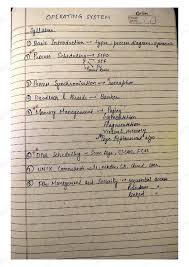 OPERATING SYSTEM
Syllabus
① Basic Introduction → types, process diagram,
② Process Scheduling → FIFO
SJF
Round Robin
③ Process Synchronisation → Semaphore
④ Deadlock & Threads → Bankers
⑤ Memory Management → Paging
Segmentation
Fragmentation
Virtual memory
Page Replacement algo
⑥ Disk Scheduling → Scan, CSCAN, FCFS
⑦ UNIX Commands →
⑧ File Management and Security → sequential access
Random "
linked "